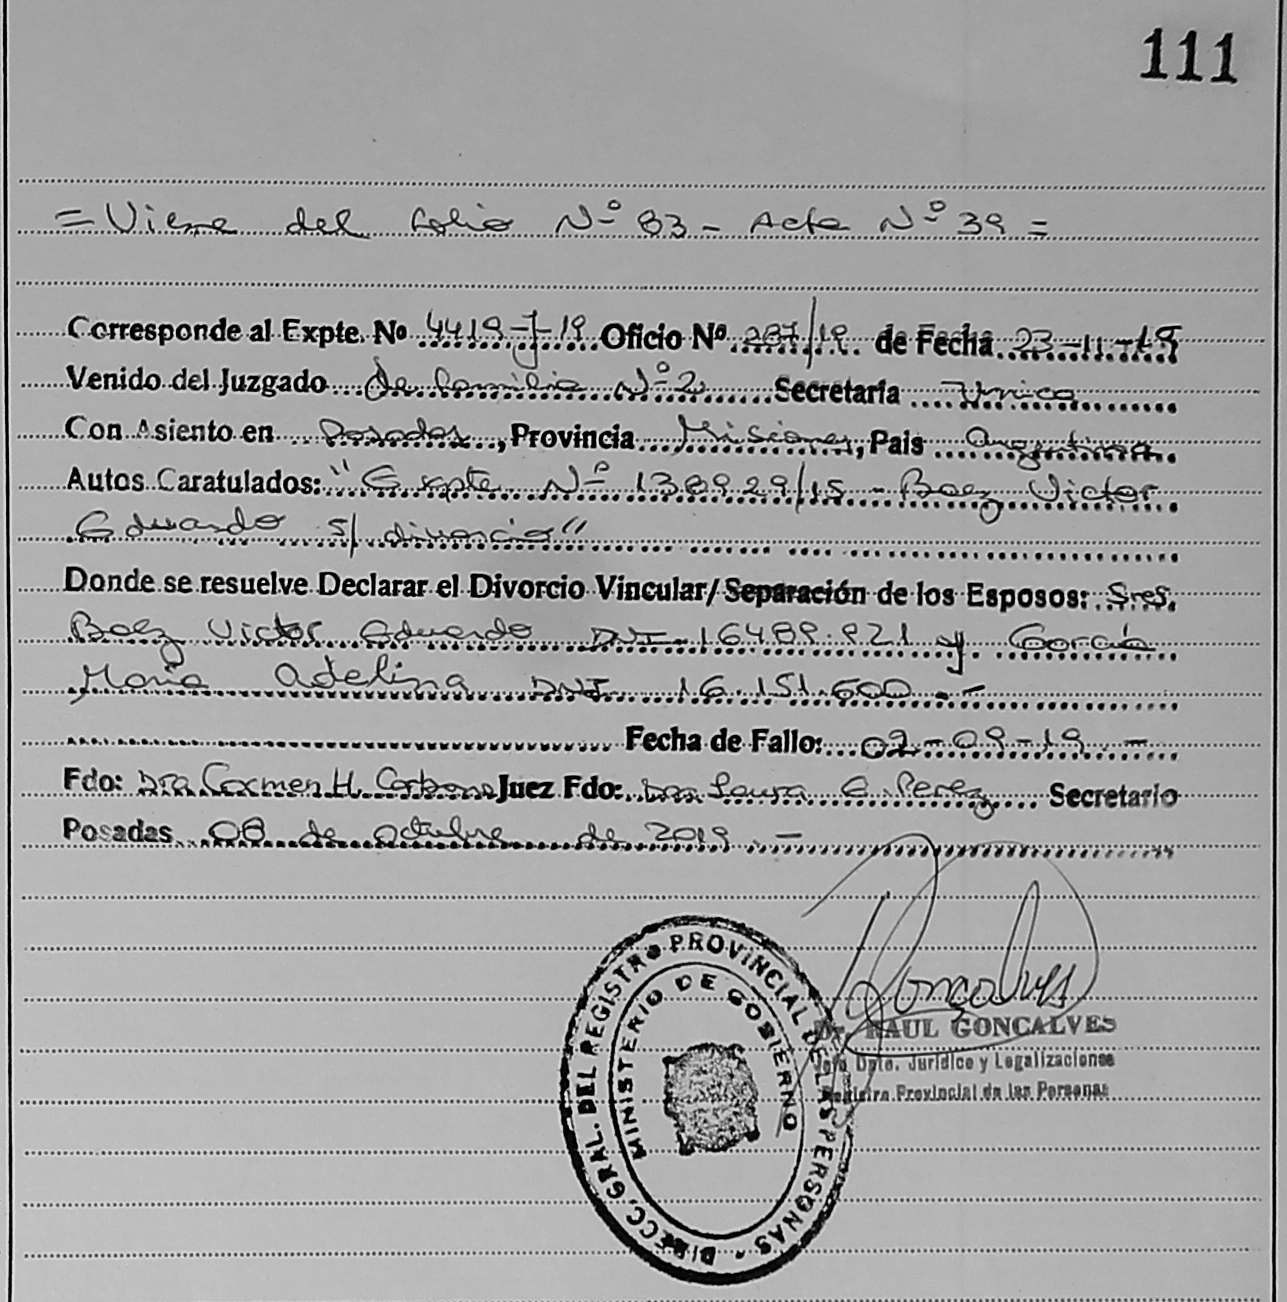 111
= Viene del folio Nº 83 - Acta Nº 39 =
Corresponde al Expte. Nº 4419-J-19 Oficio Nº 287/19 de Fecha 23-11-19
Venido del Juzgado de familia Nº 2 Secretaría Unica
Con Asiento en Posadas, Provincia Misiones, Pais Argentina
Autos Caratulados: "Expte Nº 138929/15 - Baez Victor
Eduardo s/ divorcio"
Donde se resuelve Declarar el Divorcio Vincular/Separación de los Esposos: Sres.
Baez Victor Eduardo DNI 16.489.921 y García
Maria Adelina DNI 16.151.600.-
Fecha de Fallo: 02-09-19.-
Fdo: Dra Carmen H. Carbone Juez Fdo: Dra Laura E. Perez Secretario
Posadas 08 de octubre de 2019.-
Goncalves
Dr. RAUL GONCALVES
Jefe Dpto. Jurídico y Legalizaciones
Registro Provincial de las Personas
DIRECC. GRAL. DEL REGISTRO PROVINCIAL DE LAS PERSONAS
MINISTERIO DE GOBIERNO